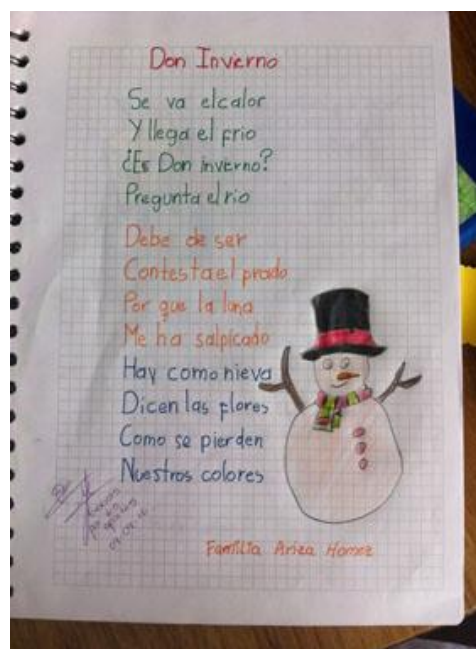 Don Invierno
Se va elcalor
Y llega el frio
¿Es Don inverno?
Pregunta el rio
Debe de ser
Contesta el prado
Por que la luna
Me ha salpicado
Hay como nieva
Dicen las flores
Como se pierden
Nuestros colores
Familia Ariza Hómez